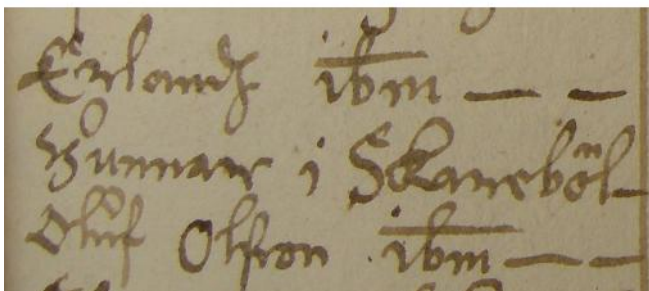 Erlandh ibm — —
Gunnar i Skareböl —
Oluf Olsson ibm — —